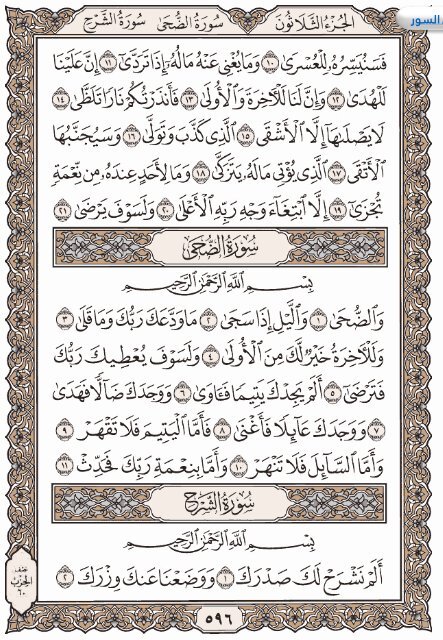 السور
الجزء الثلاثون سورة الضحى سورة الشرح
فَسَنُيَسِّرُهُۥ لِلۡعُسۡرَىٰ ١٠ وَمَا يُغۡنِي عَنۡهُ مَالُهُۥٓ إِذَا تَرَدَّىٰٓ ١١ إِنَّ عَلَيۡنَا
لَلۡهُدَىٰ ١٢ وَإِنَّ لَنَا لَلۡأٓخِرَةَ وَٱلۡأُولَىٰ ١٣ فَأَنذَرۡتُكُمۡ نَارٗا تَلَظَّىٰ ١٤
لَا يَصۡلَىٰهَآ إِلَّا ٱلۡأَشۡقَى ١٥ ٱلَّذِي كَذَّبَ وَتَوَلَّىٰ ١٦ وَسَيُجَنَّبُهَا
ٱلۡأَتۡقَى ١٧ ٱلَّذِي يُؤۡتِي مَالَهُۥ يَتَزَكَّىٰ ١٨ وَمَا لِأَحَدٍ عِندَهُۥ مِن نِّعۡمَةٖ
تُجۡزَىٰٓ ١٩ إِلَّا ٱبۡتِغَآءَ وَجۡهِ رَبِّهِ ٱلۡأَعۡلَىٰ ٢٠ وَلَسَوۡفَ يَرۡضَىٰ ٢١
سُورَةُ الضُّحَىٰ
بِسۡمِ ٱللَّهِ ٱلرَّحۡمَٰنِ ٱلرَّحِيمِ
وَٱلضُّحَىٰ ١ وَٱلَّيۡلِ إِذَا سَجَىٰ ٢ مَا وَدَّعَكَ رَبُّكَ وَمَا قَلَىٰ ٣
وَلَلۡأٓخِرَةُ خَيۡرٞ لَّكَ مِنَ ٱلۡأُولَىٰ ٤ وَلَسَوۡفَ يُعۡطِيكَ رَبُّكَ
فَتَرۡضَىٰٓ ٥ أَلَمۡ يَجِدۡكَ يَتِيمٗا فَـَٔاوَىٰ ٦ وَوَجَدَكَ ضَآلّٗا فَهَدَىٰ
٧ وَوَجَدَكَ عَآئِلٗا فَأَغۡنَىٰ ٨ فَأَمَّا ٱلۡيَتِيمَ فَلَا تَقۡهَرۡ ٩
وَأَمَّا ٱلسَّآئِلَ فَلَا تَنۡهَرۡ ١٠ وَأَمَّا بِنِعۡمَةِ رَبِّكَ فَحَدِّثۡ ١١
سُورَةُ الشَّرۡحِ
بِسۡمِ ٱللَّهِ ٱلرَّحۡمَٰنِ ٱلرَّحِيمِ
أَلَمۡ نَشۡرَحۡ لَكَ صَدۡرَكَ ١ وَوَضَعۡنَا عَنكَ وِزۡرَكَ ٢
نصف
الحزب
٦٠
٥٩٦